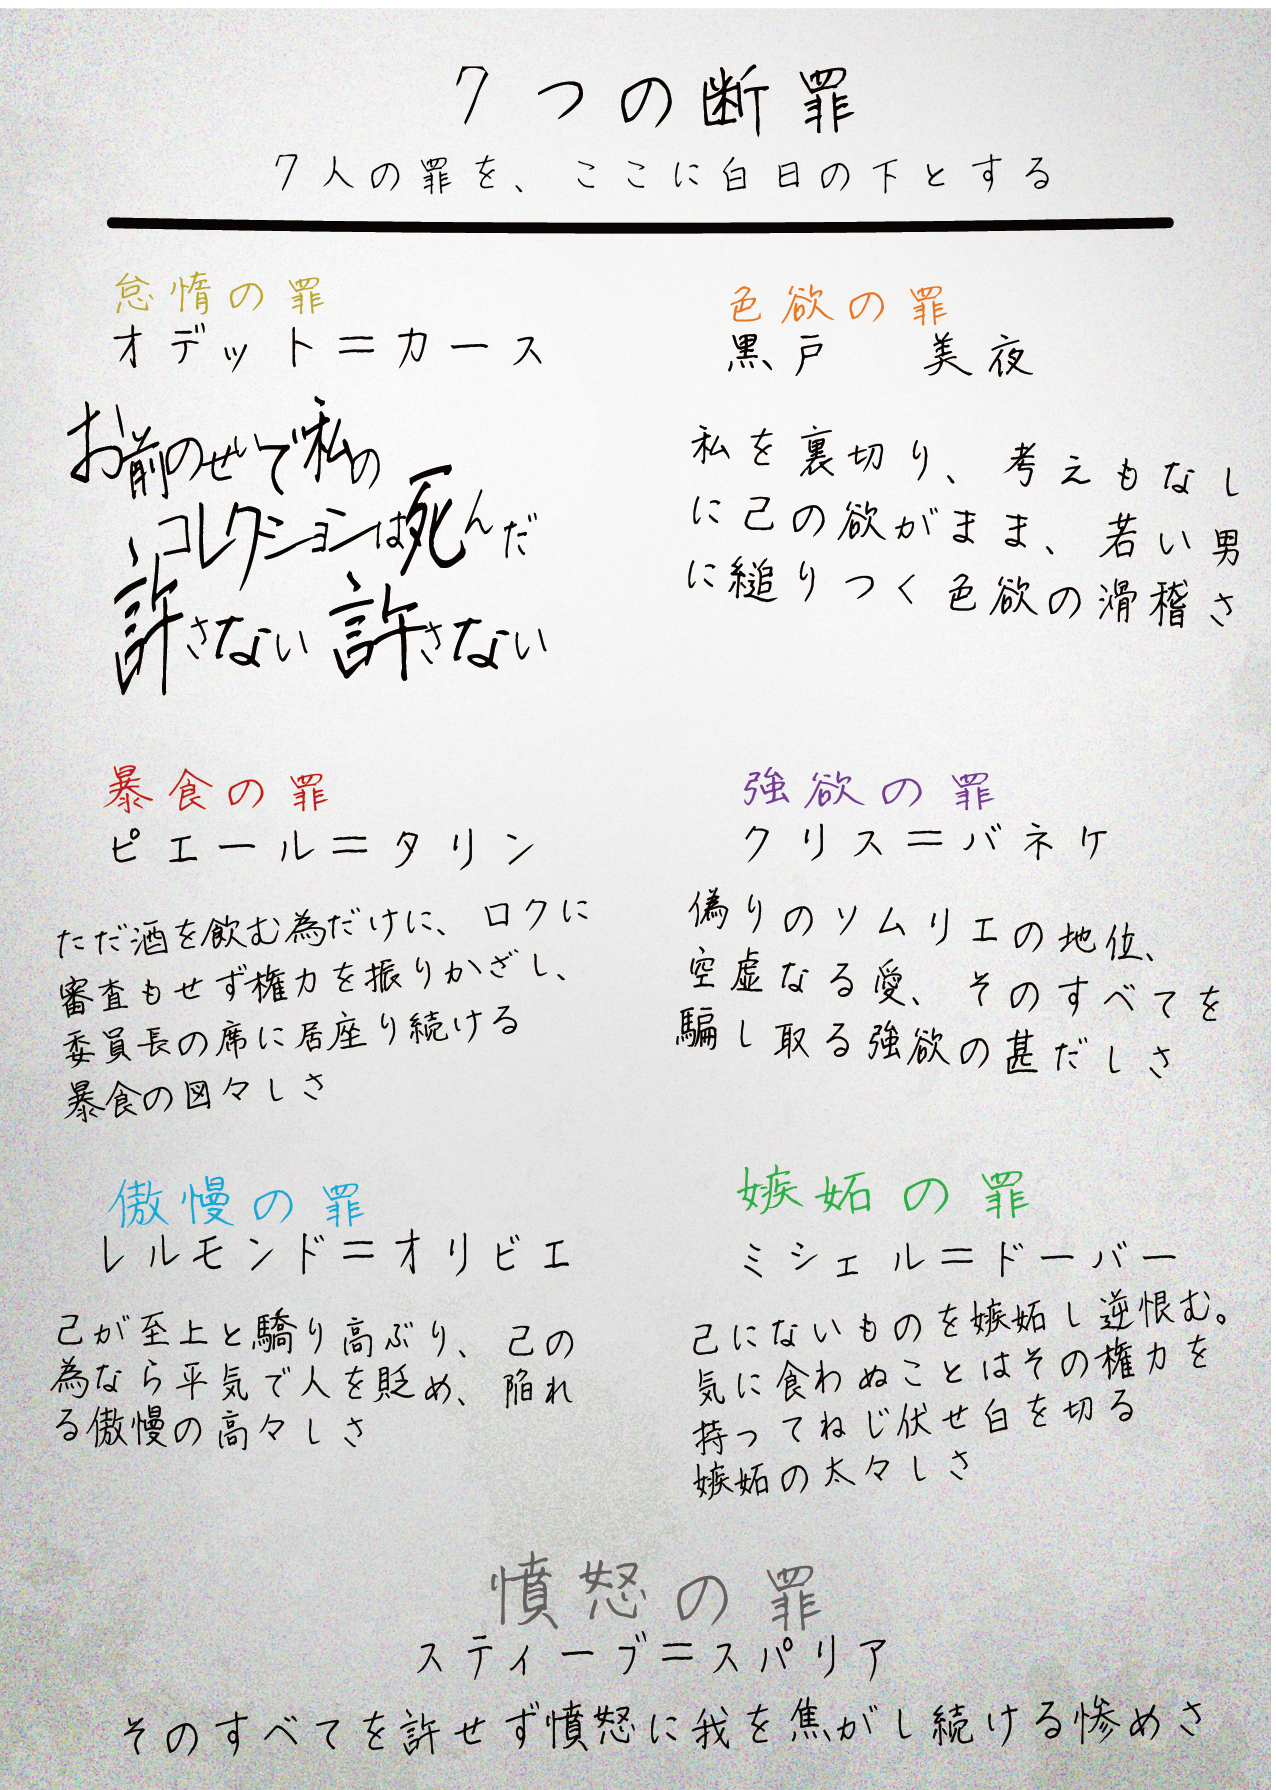 7つの断罪
7人の罪を、ここに白日の下とする
怠惰の罪
オデット＝カース
お前のせいで私の
コレクションは死んだ
許さない 許さない
色欲の罪
黒戸　美夜
私を裏切り、考えもなし
に己の欲がまま、若い男
に縋りつく色欲の滑稽さ
暴食の罪
ピエール＝タリン
ただ酒を飲む為だけに、ロクに
審査もせず権力を振りかざし、
委員長の席に居座り続ける
暴食の図々しさ
強欲の罪
クリス＝バネケ
偽りのソムリエの地位、
空虚なる愛、そのすべてを
騙し取る強欲の甚だしさ
傲慢の罪
レルモンド＝オリビエ
己が至上と驕り高ぶり、己の
為なら平気で人を貶め、陥れ
る傲慢の高々しさ
嫉妬の罪
ミシェル＝ドーバー
己にないものを嫉妬し逆恨む。
気に食わぬことはその権力を
持ってねじ伏せ白を切る
嫉妬の太々しさ
憤怒の罪
スティーブ＝スパリア
そのすべてを許せず憤怒に我を焦がし続ける惨めさ